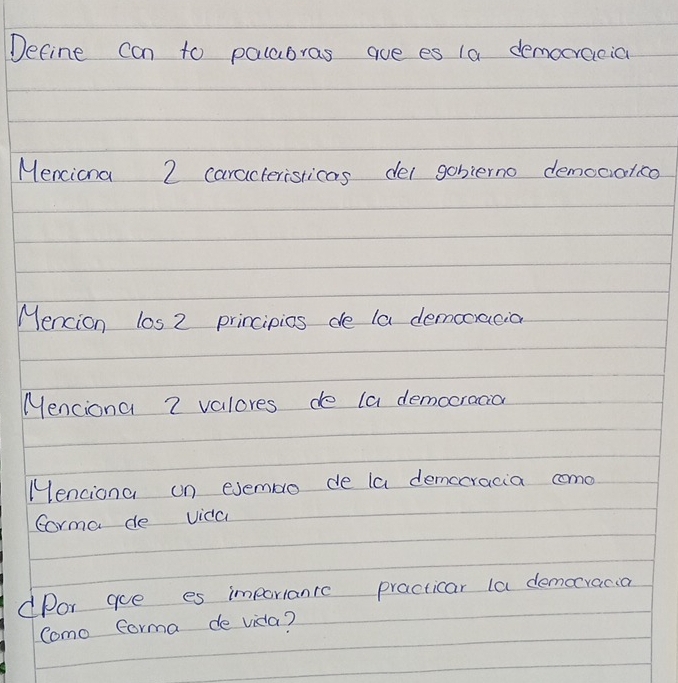 Define con to palabras que es la democracia
Menciona 2 caracteristicas del gobierno democratico
Mencion los 2 principios de la democracia
Menciona 2 valores de la democracia
Menciona un ejemplo de la democracia como
forma de vida
¿Por que es importante practicar la democracia
como forma de vida?